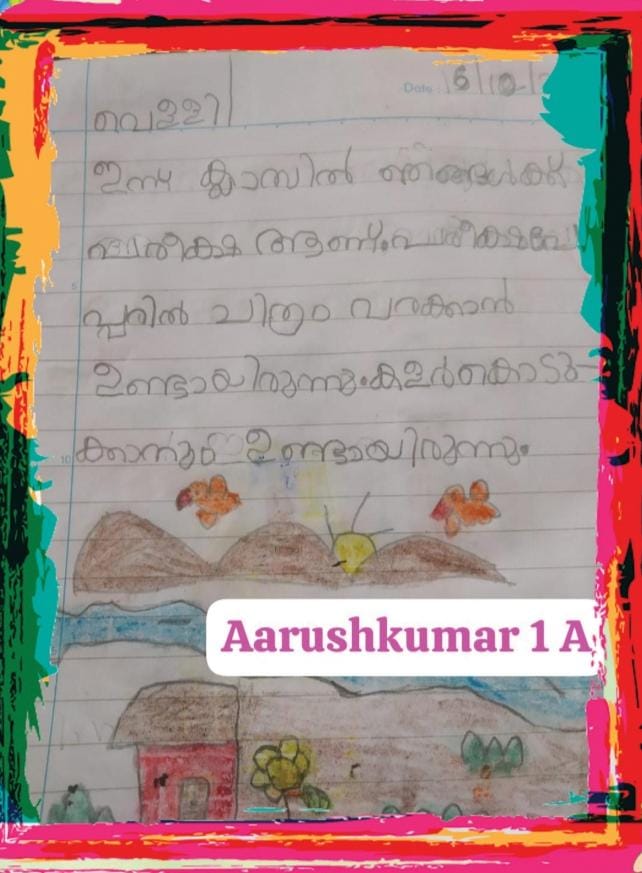 Date: 6/10/
വെള്ളി
ഇന്ന് ക്ലാസിൽ ഞങ്ങൾക്ക്
പരീക്ഷ ആണ്. പരീക്ഷപേ
പ്പരിൽ ചിത്രം വരക്കാൻ
ഉണ്ടായിരുന്നു. കളർകൊടു-
ക്കാനും ഉണ്ടായിരുന്നു.
Aarushkumar 1 A